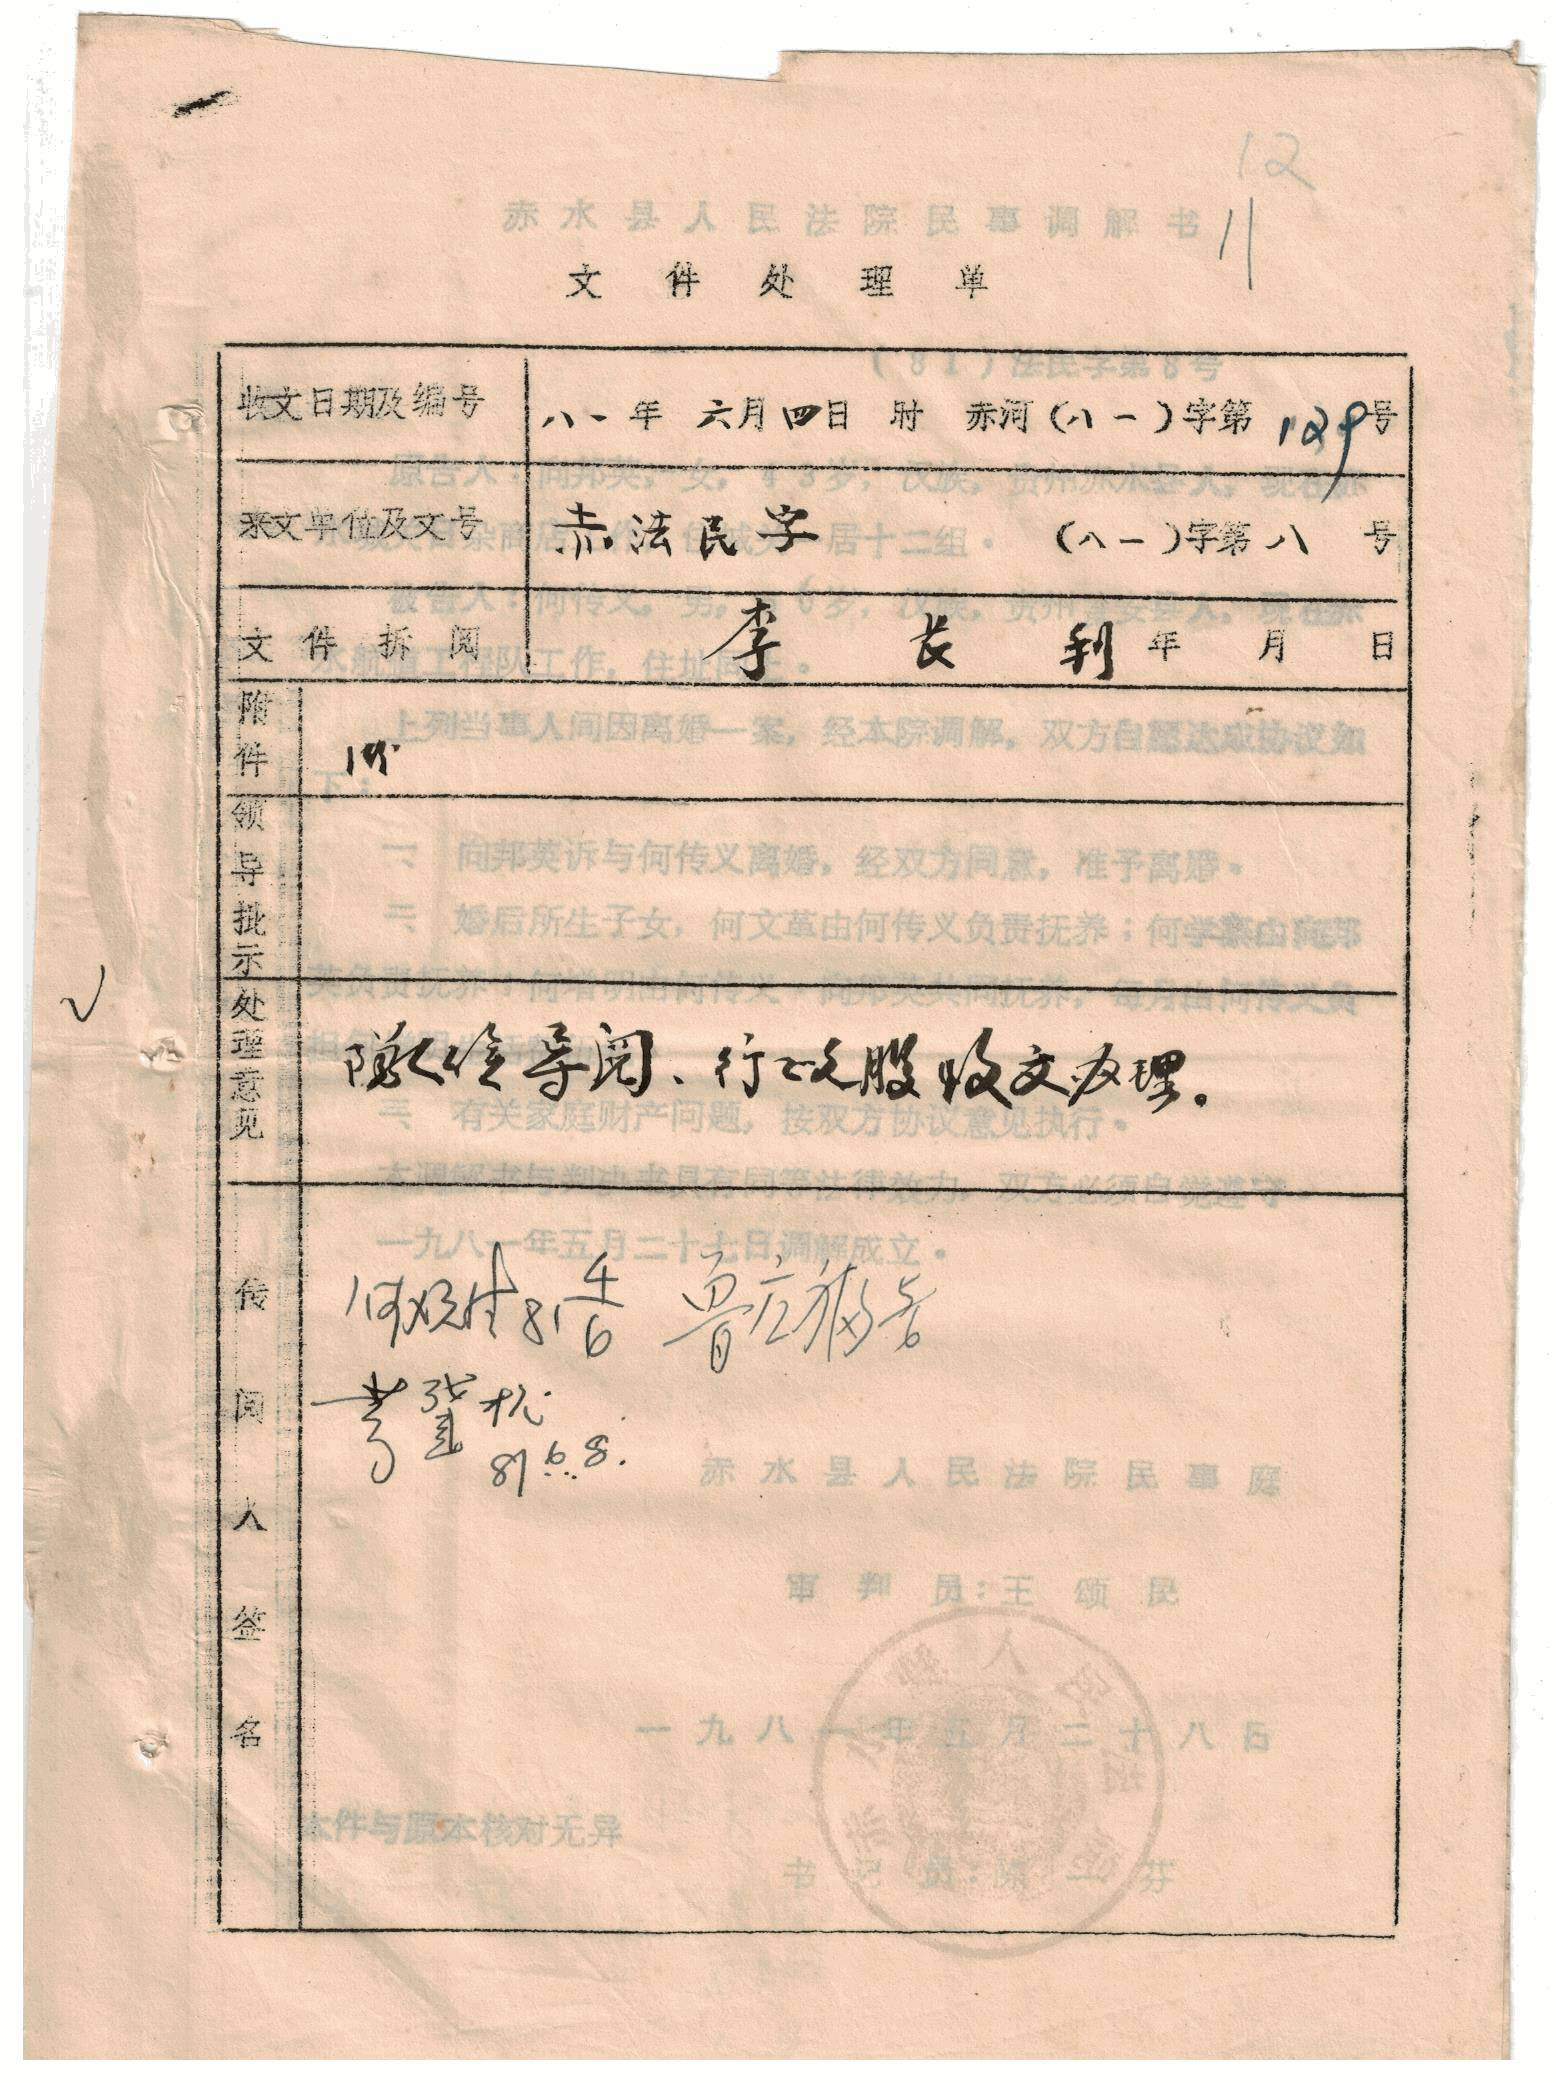 12
赤水县人民法院民事调解书
11
文件处理单
(81)法民字第8号
收文日期及编号 八一年 六月四日 时 赤河(八一)字第129号
原告人：向邦英，女，43岁，汉族，贵州赤水县人，现在赤
来文单位及文号 赤法民字 (八一)字第八号
杂商店 居十二组。
被告人：何传义，男，6岁，汉族，贵州 人，现在赤
文件拆阅 李长利 年 月 日
水航道工 队工作，住址同上。
附件
上列当事人间因离婚一案，经本院调解，双方自愿达成协议如
下：
领导批示
一、向邦英诉与何传义离婚，经双方同意，准予离婚。
二、婚后所生子女，何文革由何传义负责抚养；何学 由向邦
英负责抚养；何增明由何传义、向邦英共同抚养，每月由何传义负
处理意见 导阅、行政股收文办理。
三、有关家庭财产问题，按双方协议意见执行。
本调解书与判决书具有同等法律效力，双方必须自觉遵守
一九八一年五月二十七日调解成立。
传阅人签名 81 4/6
81.6.8.
赤水县人民法院民事庭
审判员：王颂民
一九八一年五月二十八日
本件与原本核对无异
书记员：陈一芬